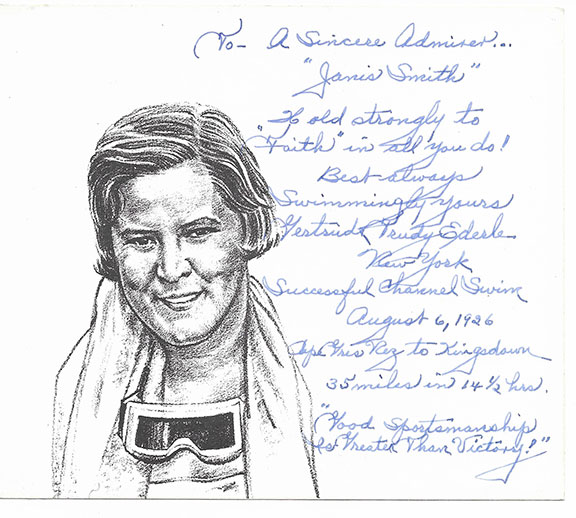 To- A Sincere Admirer...
"Janis Smith"
Hold strongly to
"Faith" in all you do!
Best always
Swimmingly yours
Gertrude Trudy Ederle
New York
Successful Channel Swim
August 6, 1926
Cape Gris Nez to Kingsdown
35 miles in 14 1/2 hrs.
"Good Sportsmanship
is Greater Than Victory!"